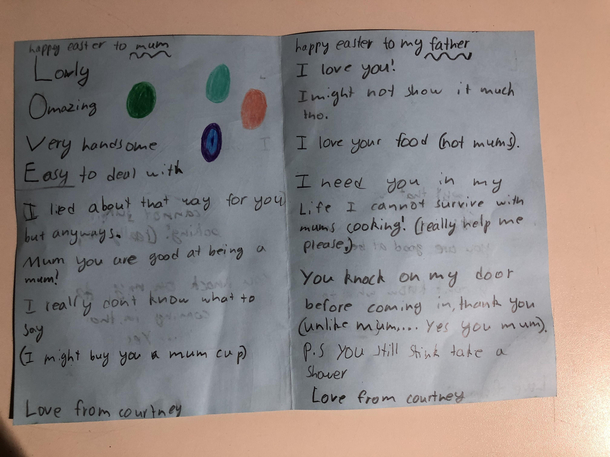 happy easter to mum
Lovly
Omazing
Very handsome
Easy to deal with
I lied about that way for you
but anyways.
Mum you are good at being a
mum!
I really dont know what to
say
(I might buy you a mum cup)
Love from courtney
happy easter to my father
I love you!
I might not show it much
tho.
I love your food (not mums).
I need you in my
Life I cannot survive with
mums cooking! (really help me
please,)
You knock on my door
before coming in, thank you
(unlike mum.... Yes you mum).
P.S YOU still stink take a
shower
Love from courtney